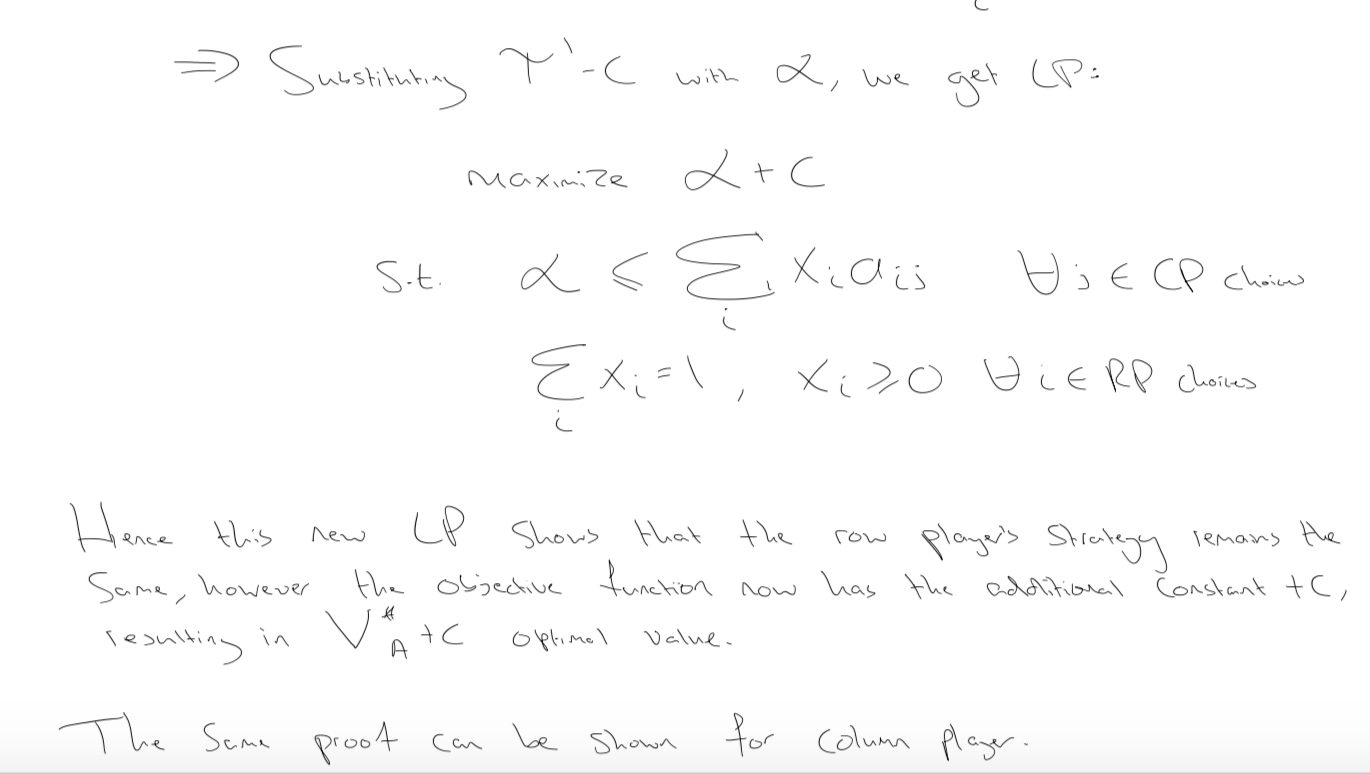 ⇒ Substituting γ'-C with α, we get LP:
maximize α + C
s.t. α ≤ Σ_i x_i a_ij ∀j ∈ CP choices
Σ_i x_i = 1, x_i ≥ 0 ∀i ∈ RP choices
Hence this new LP shows that the row player's strategy remains the
same, however the objective function now has the additional constant +C,
resulting in V*_A + C optimal value.
The same proof can be shown for column player.